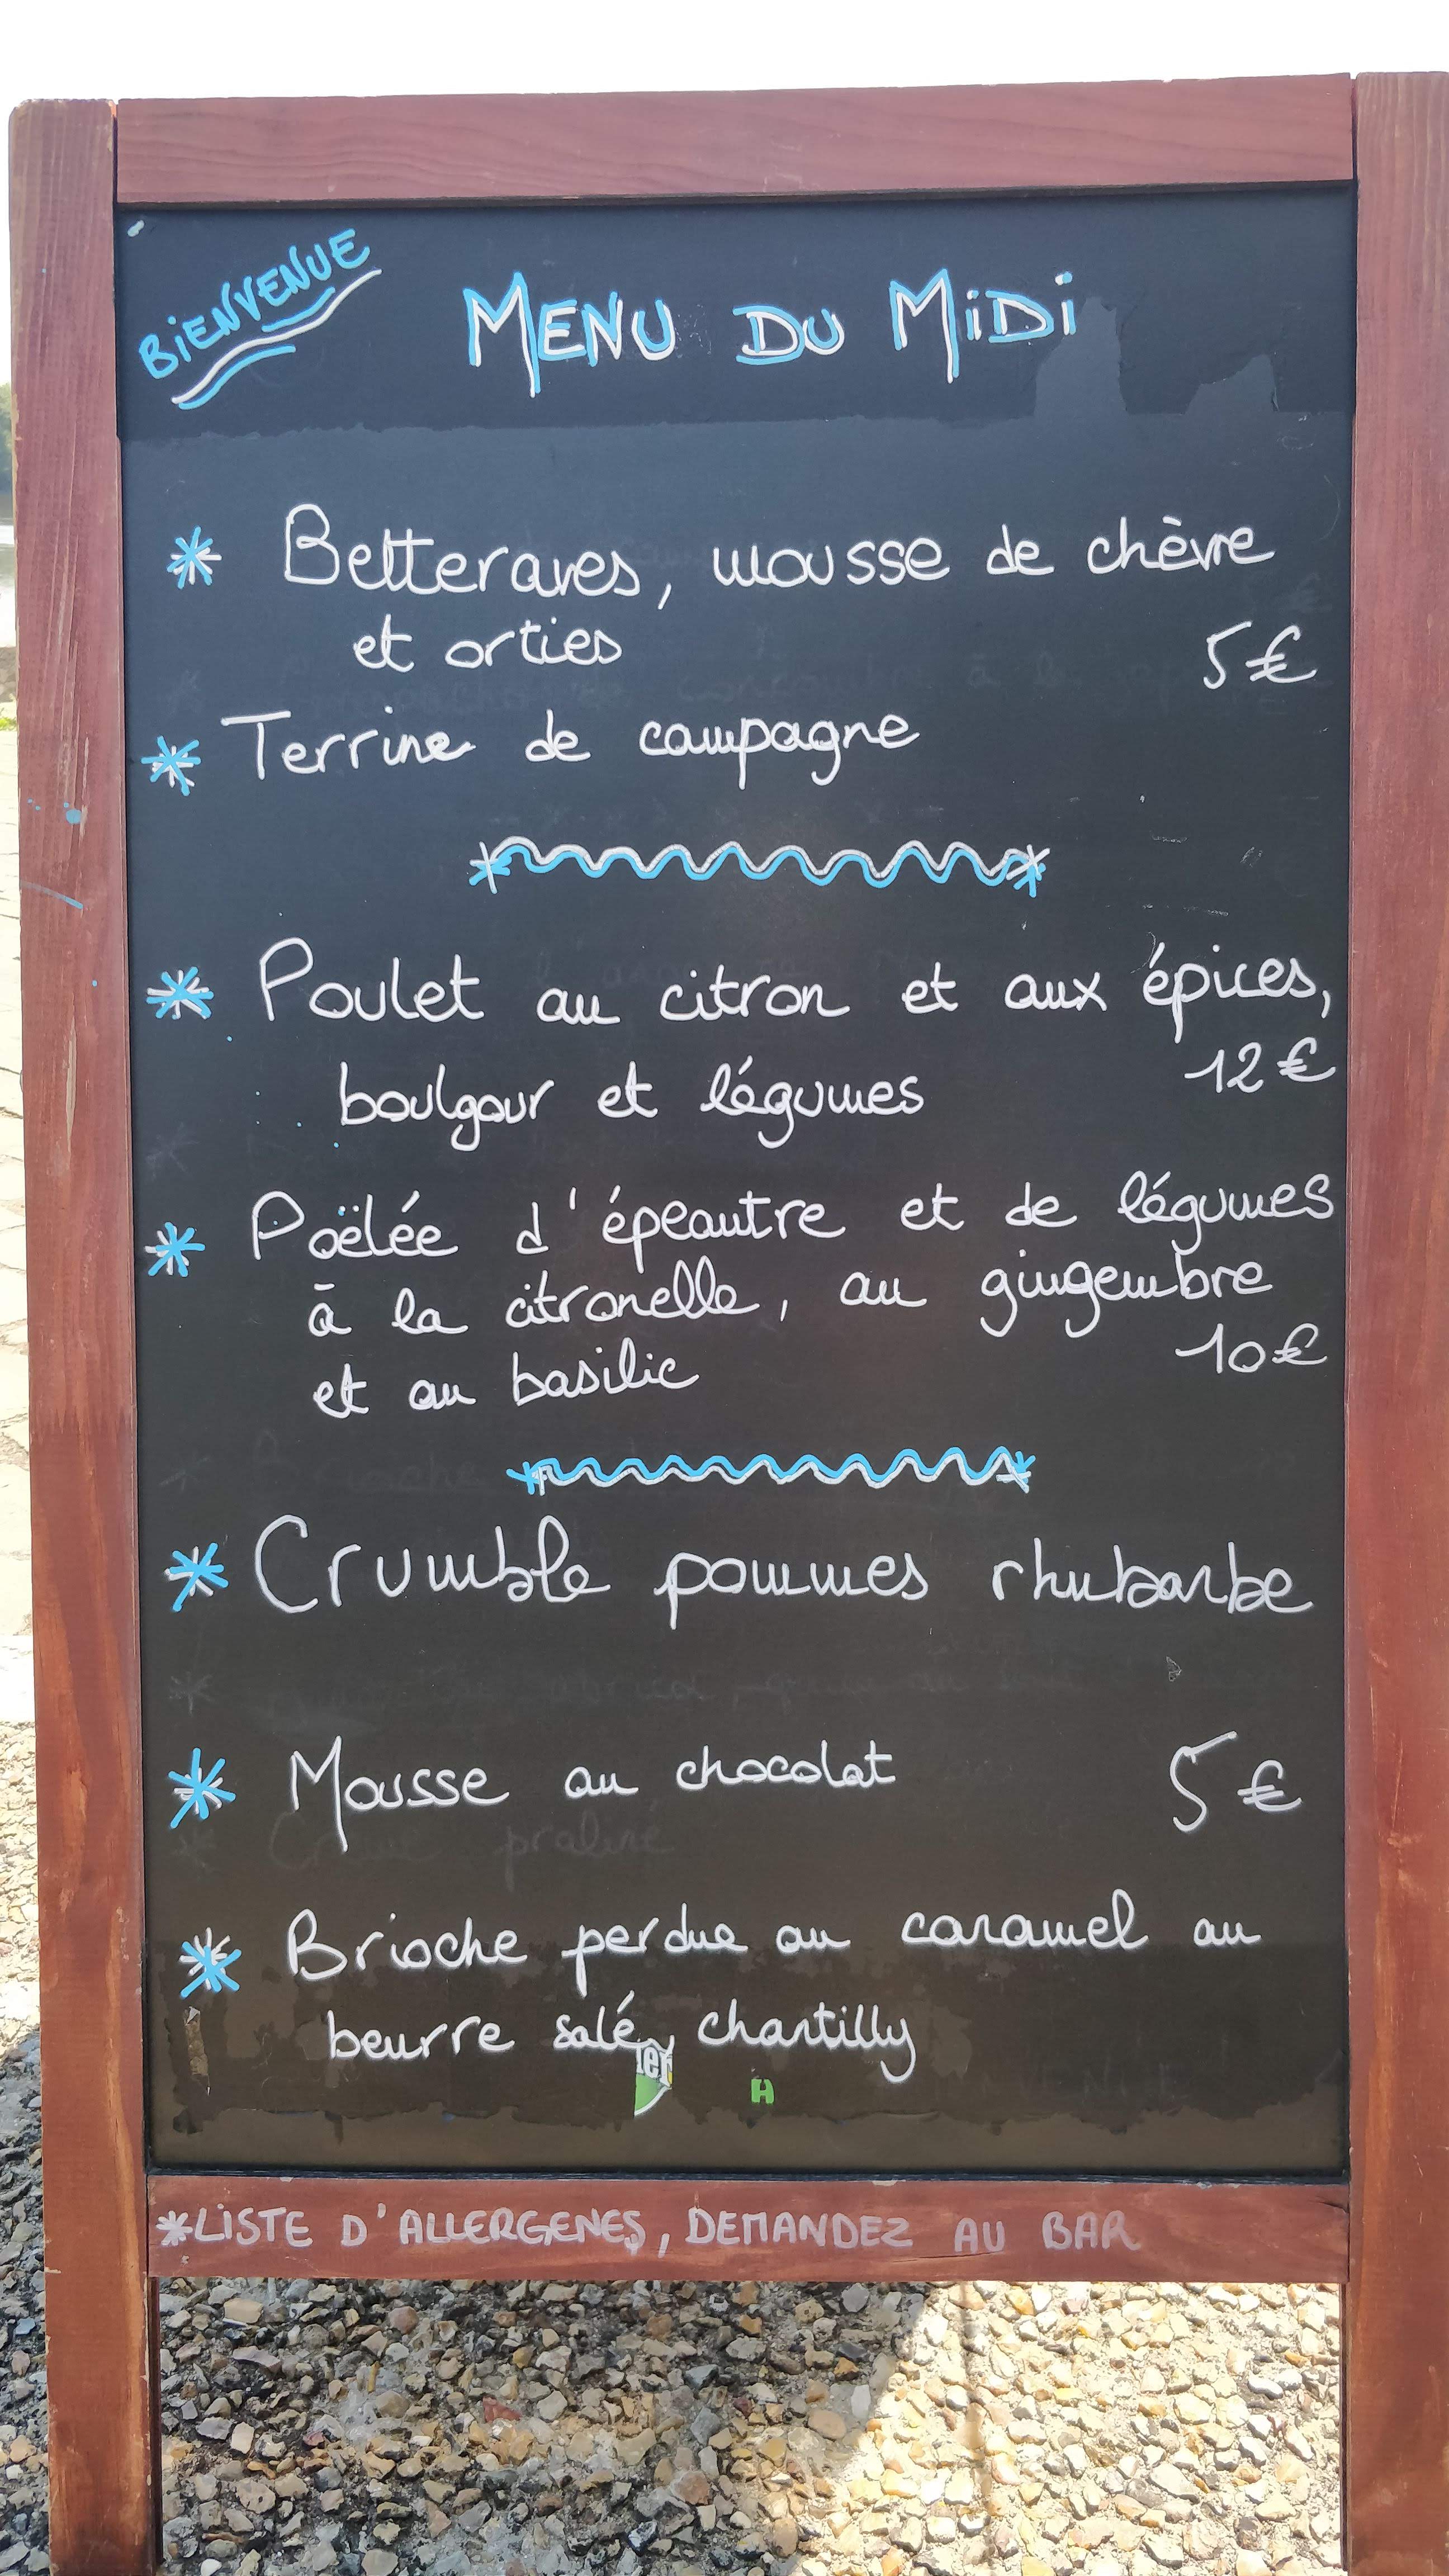 BiENVENUE
MENU DU MiDi
* Betteraves, mousse de chèvre
et orties 5€
* Terrine de campagne
* Poulet au citron et aux épices,
12€
boulgour et légumes
* Poëlée d'épeautre et de légumes
à la citronelle, au gingembre
10€
et au basilic
* Crumble pommes rhubarbe
* Mousse au chocolat 5€
* Brioche perdue au caramel au
beurre salé, chantilly
H
*LiSTE D'ALLERGENES, DEMANDEZ AU BAR